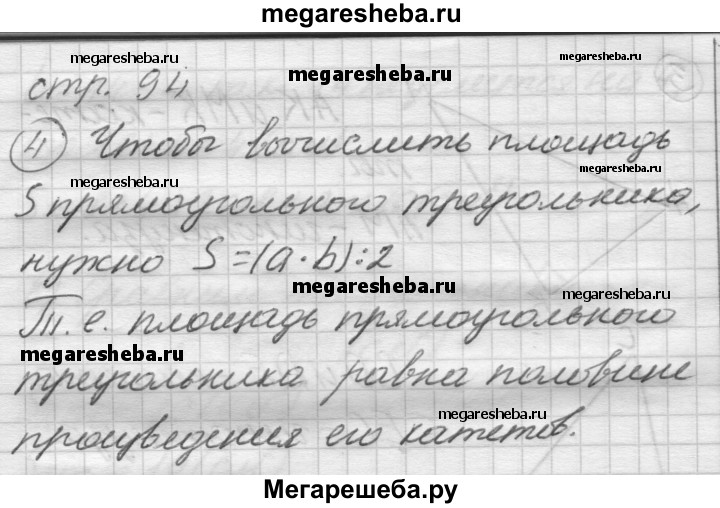 megaresheba.ru
megaresheba.ru
megaresheba.ru
megaresheba.ru
стр. 94
5
4 Чтобы вычислить площадь
megaresheba.ru
megaresheba.ru
S прямоугольного треугольника,
нужно S=(a·b):2
megaresheba.ru
megaresheba.ru
Т.е. площадь прямоугольного
megaresheba.ru
треугольника равна половине
megaresheba.ru
произведения его катетов.
Мегарешеба.ру